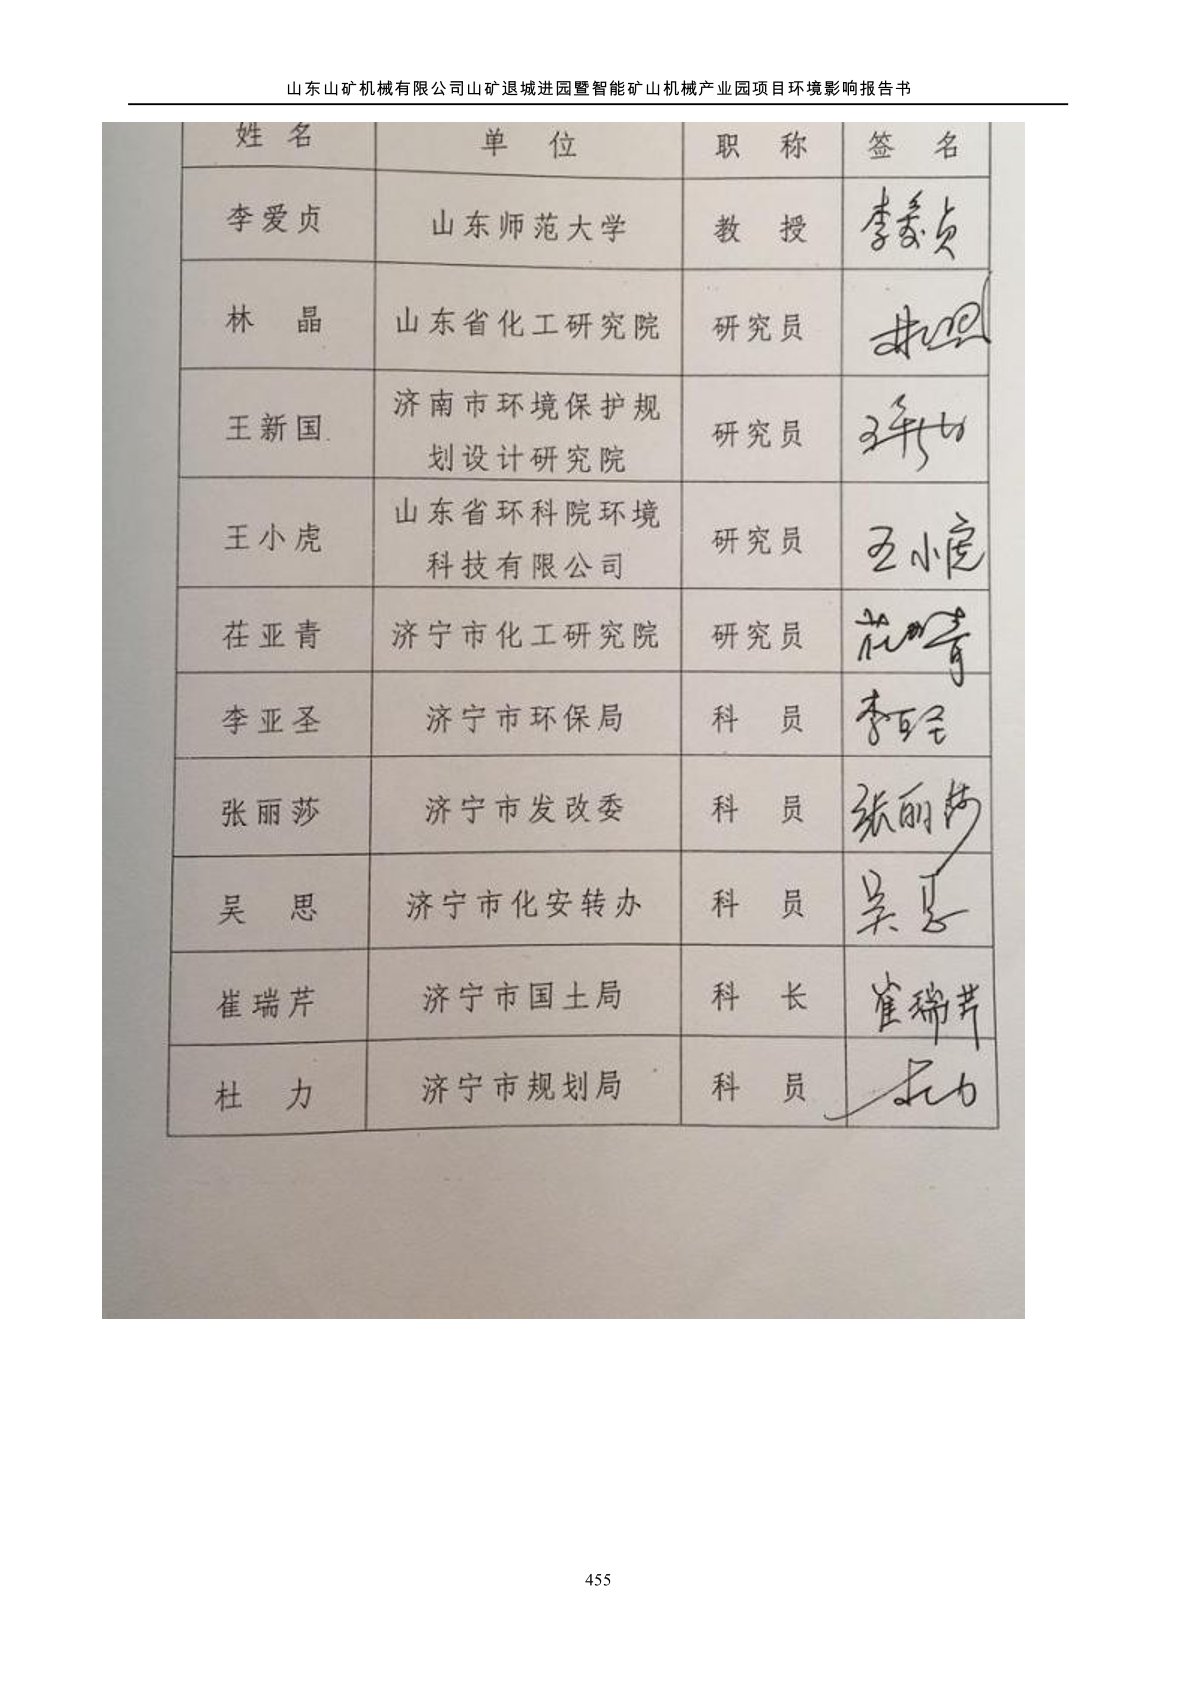 山东山矿机械有限公司山矿退城进园暨智能矿山机械产业园项目环境影响报告书
姓 名 单 位 职 称 签 名
李爱贞 山东师范大学 教 授 李爱贞
林 晶 山东省化工研究院 研究员
王新国 济南市环境保护规
划设计研究院 研究员
王小虎 山东省环科院环境
科技有限公司 研究员 王小虎
茌亚青 济宁市化工研究院 研究员 茌亚青
李亚圣 济宁市环保局 科 员 李亚圣
张丽莎 济宁市发改委 科 员 张丽莎
吴 思 济宁市化安转办 科 员 吴思
崔瑞芹 济宁市国土局 科 长 崔瑞芹
杜 力 济宁市规划局 科 员 杜力
455